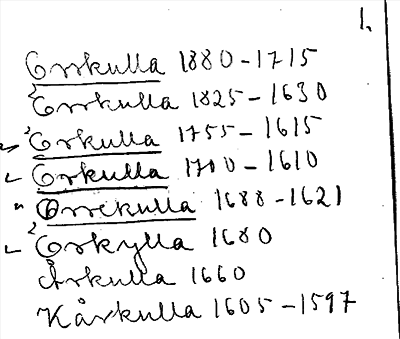 1.
Orrkulla 1880-1715
Orrkulla 1825-1630
Orkulla 1755-1615
Orkulla 1700-1610
Orrekulla 1688-1621
Orkylla 1680
Årkulla 1660
Kårkulla 1605-1597